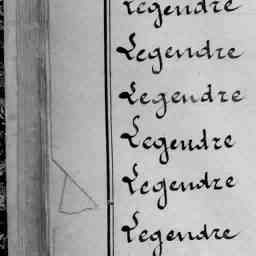 Legendre
Legendre
Legendre
Legendre
Legendre
Legendre